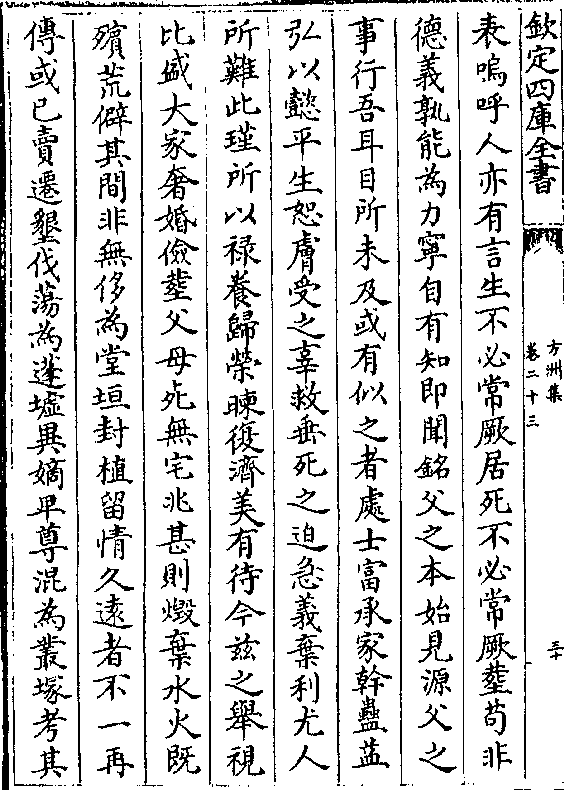 欽定四庫全書
方洲集
卷二十三
三十
表嗚呼人亦有言生不必常厥居死不必常厥塟茍非
德義孰能為力寧自有知即聞銘父之本始見源父之
事行吾耳目所未及或有似之者處士富承家幹蠱葢
弘以懿平生恕膚受之辜救垂死之迫急義棄利尤人
所難此瑾所以禄養歸榮暕復濟美有待今兹之舉視
比盛大家奢婚儉塟父母死無宅兆甚則燬棄水火既
殯荒僻其間非無侈為堂垣封植留情久遠者不一再
傳或已賣遷墾伐蕩為蓬墟異嫡卑尊混為叢塚考其